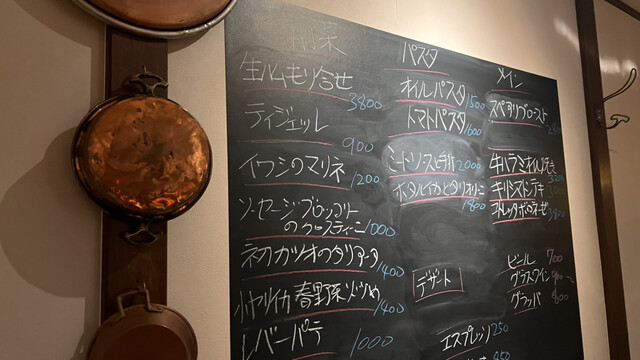 前菜
生ハムもり合せ
3800
ティジェッレ
900
イワシのマリネ
1200
ソーセージ・ブロッコリー
のクロスティーニ 1000
初カツオのタリアータ
1400
小ヤリイカ 春野菜
1400
レバーパテ
1000
パスタ
オイルパスタ
1500
トマトパスタ
1600
ミートソース
2000
ホタルイカとタリオリーニ
1800
デザート
エスプレッソ 250
350
メイン
スペアリブロースト
牛ハラミオイル
コトレッタボロネーゼ
ビール 700
グラスワイン 900～
グラッパ 800